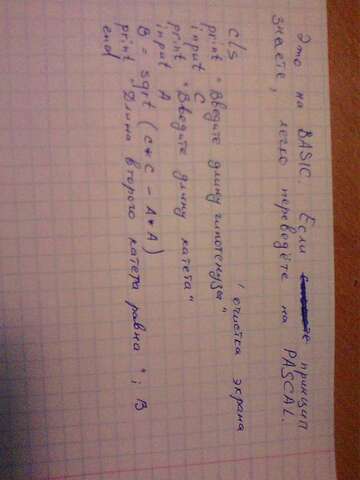 Это на BASIC. Если принцип
знаете, легко переведёте на PASCAL.
cls ' очистка экрана
print "Введите длину гипотенузы"
input C
print "Введите длину катета"
input A
B = sqrt (C*C - A*A)
print "Длина второго катета равна"; B
end